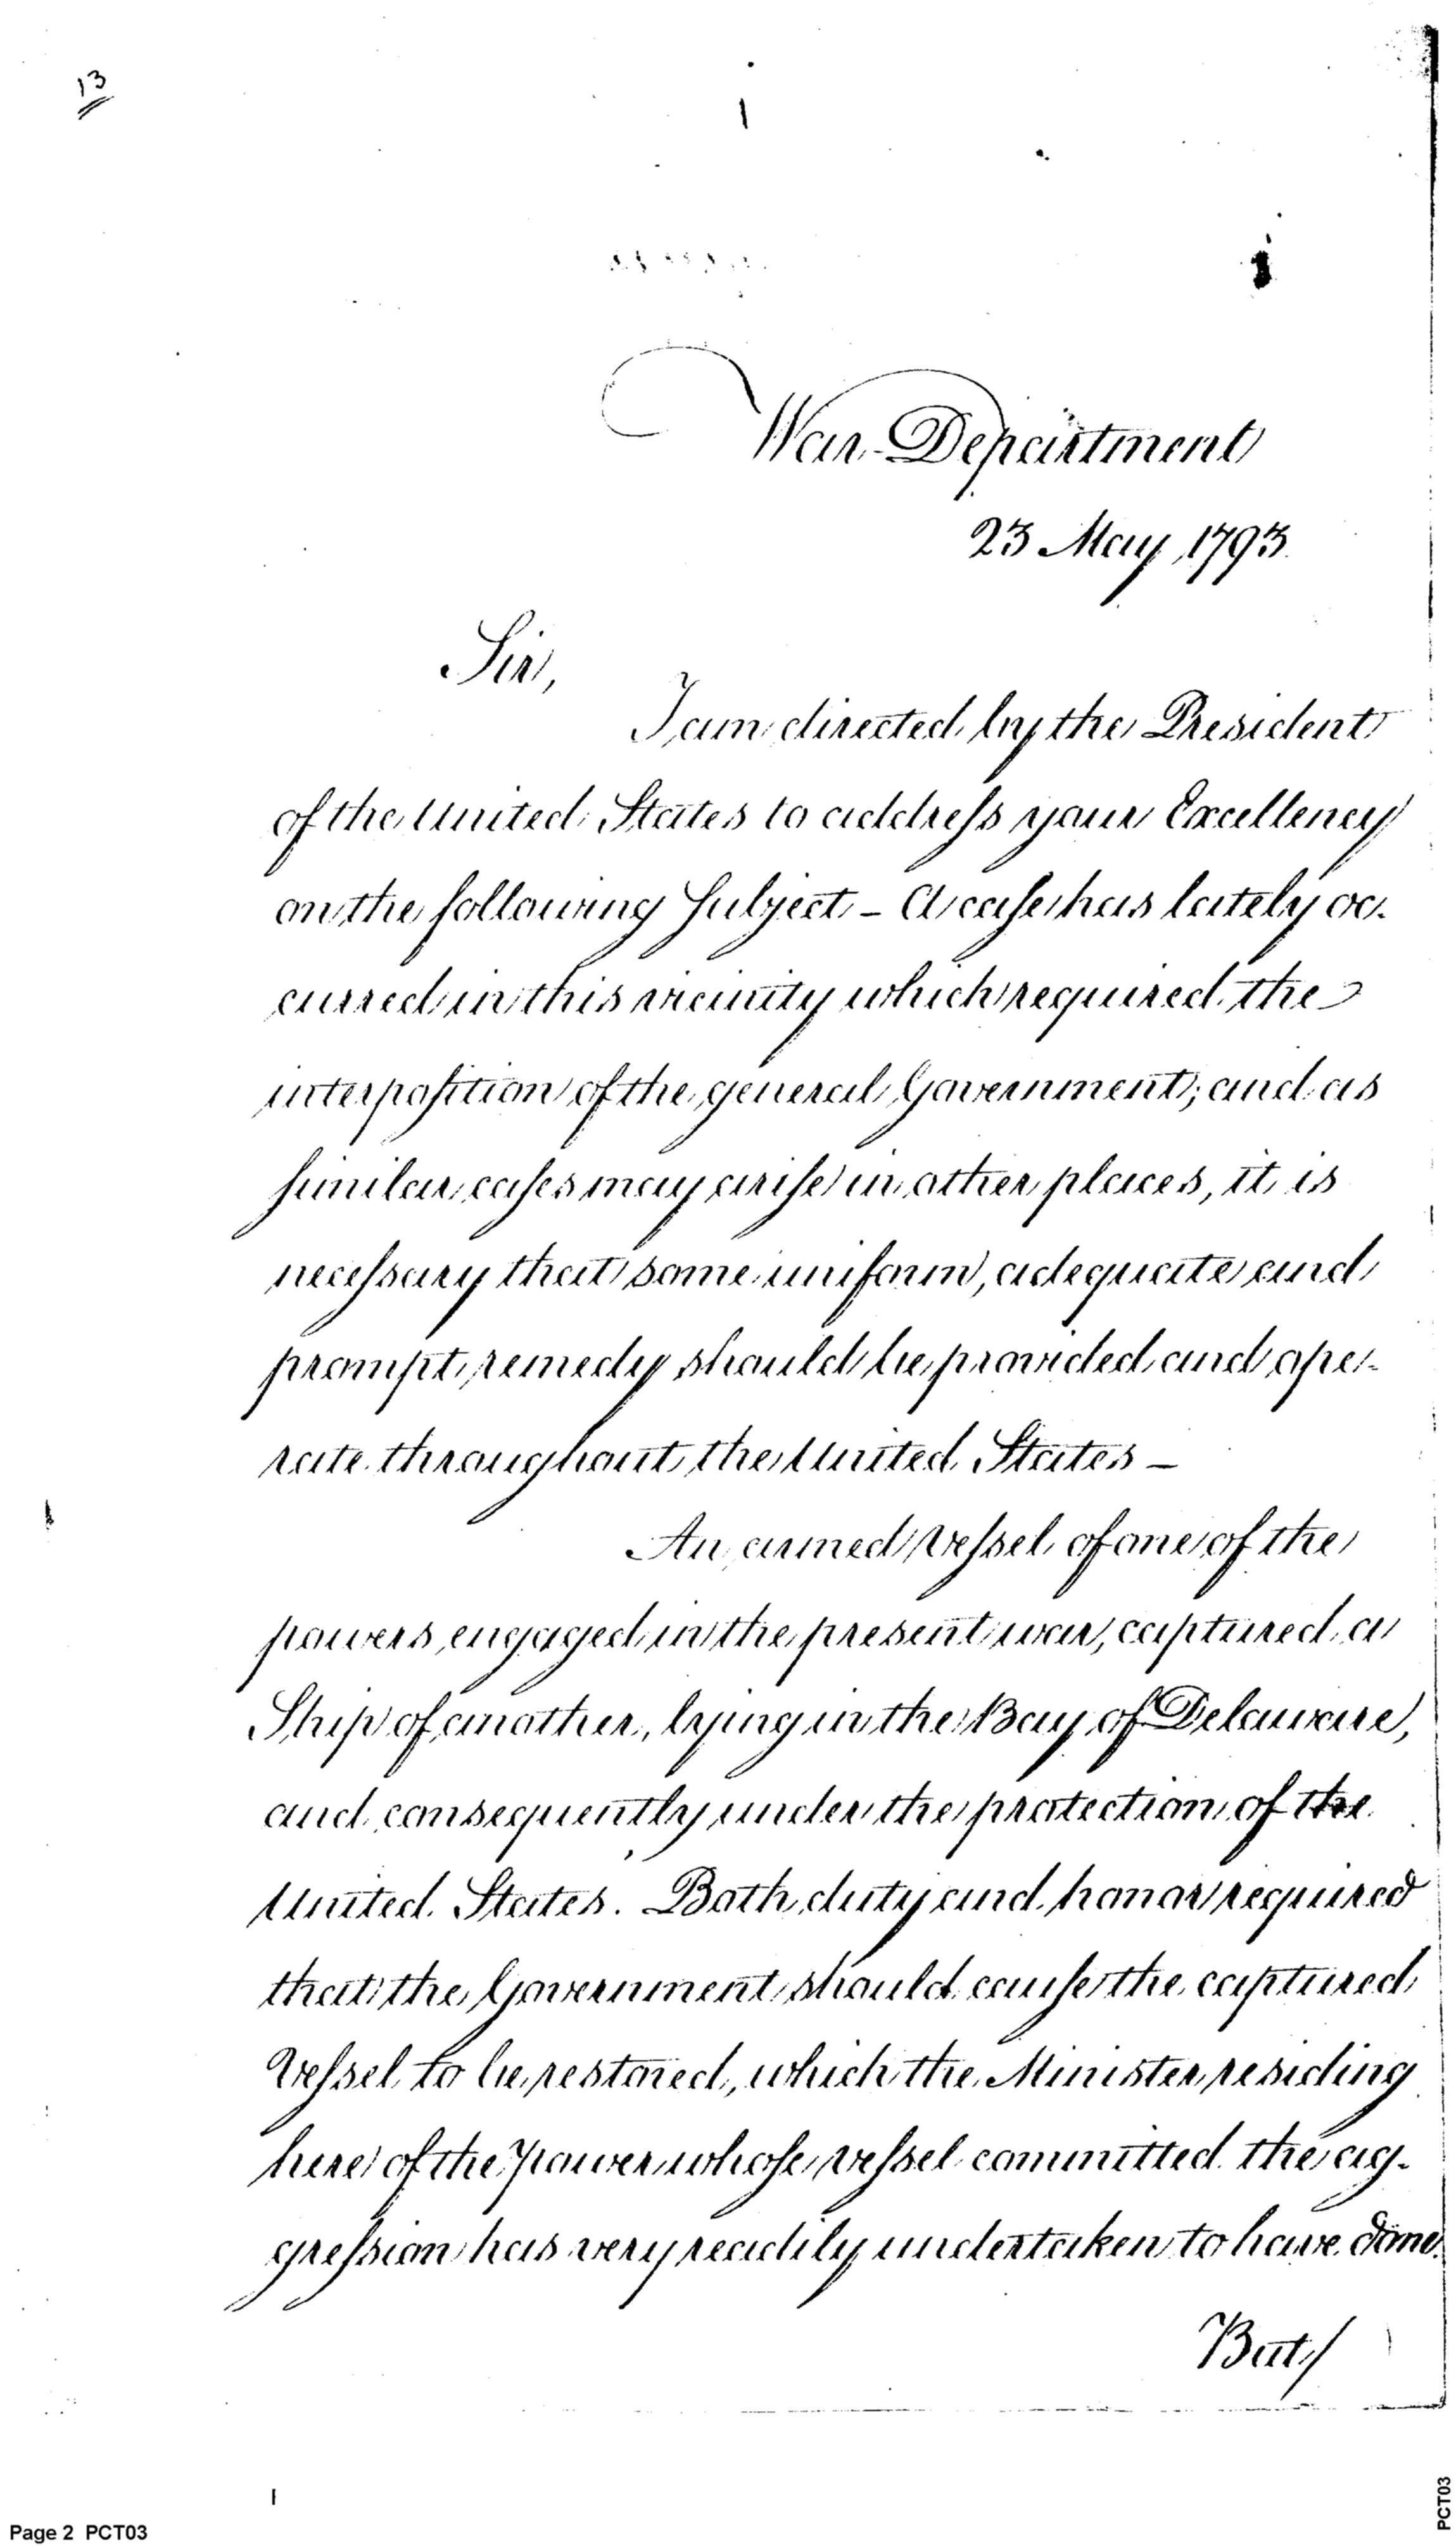 13
War Department
23 May 1793.
Sir,
I am directed by the President
of the United States to address your Excellency
on the following Subject – A case has lately oc-
curred in this vicinity which required the
interposition of the general Government; and as
similar cases may arise in other places, it is
necessary that some uniform, adequate and
prompt remedy should be provided and ope-
rate throughout the United States –
An armed vessel of one of the
powers engaged in the present war, captured a
Ship of another, lying in the Bay of Delaware,
and consequently under the protection of the
United States. Both duty and honor required
that the Government should cause the captured
Vessel to be restored, which the Minister residing
here of the power whose vessel committed the ag-
gression has very readily undertaken to have done.
But/
Page 2 PCT03
PCT03